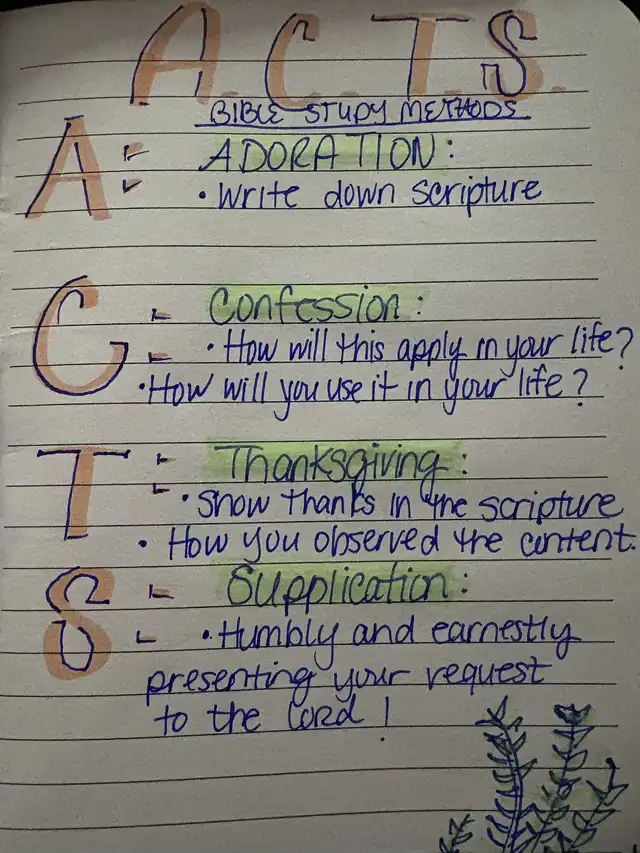 A.C.T.S.
BIBLE STUDY METHODS
A: ADORATION:
• Write down scripture
C: Confession:
• How will this apply in your life?
• How will you use it in your life?
T: Thanksgiving:
• Show thanks in the scripture
• How you observed the content.
S: Supplication:
• Humbly and earnestly
presenting your request
to the Lord!